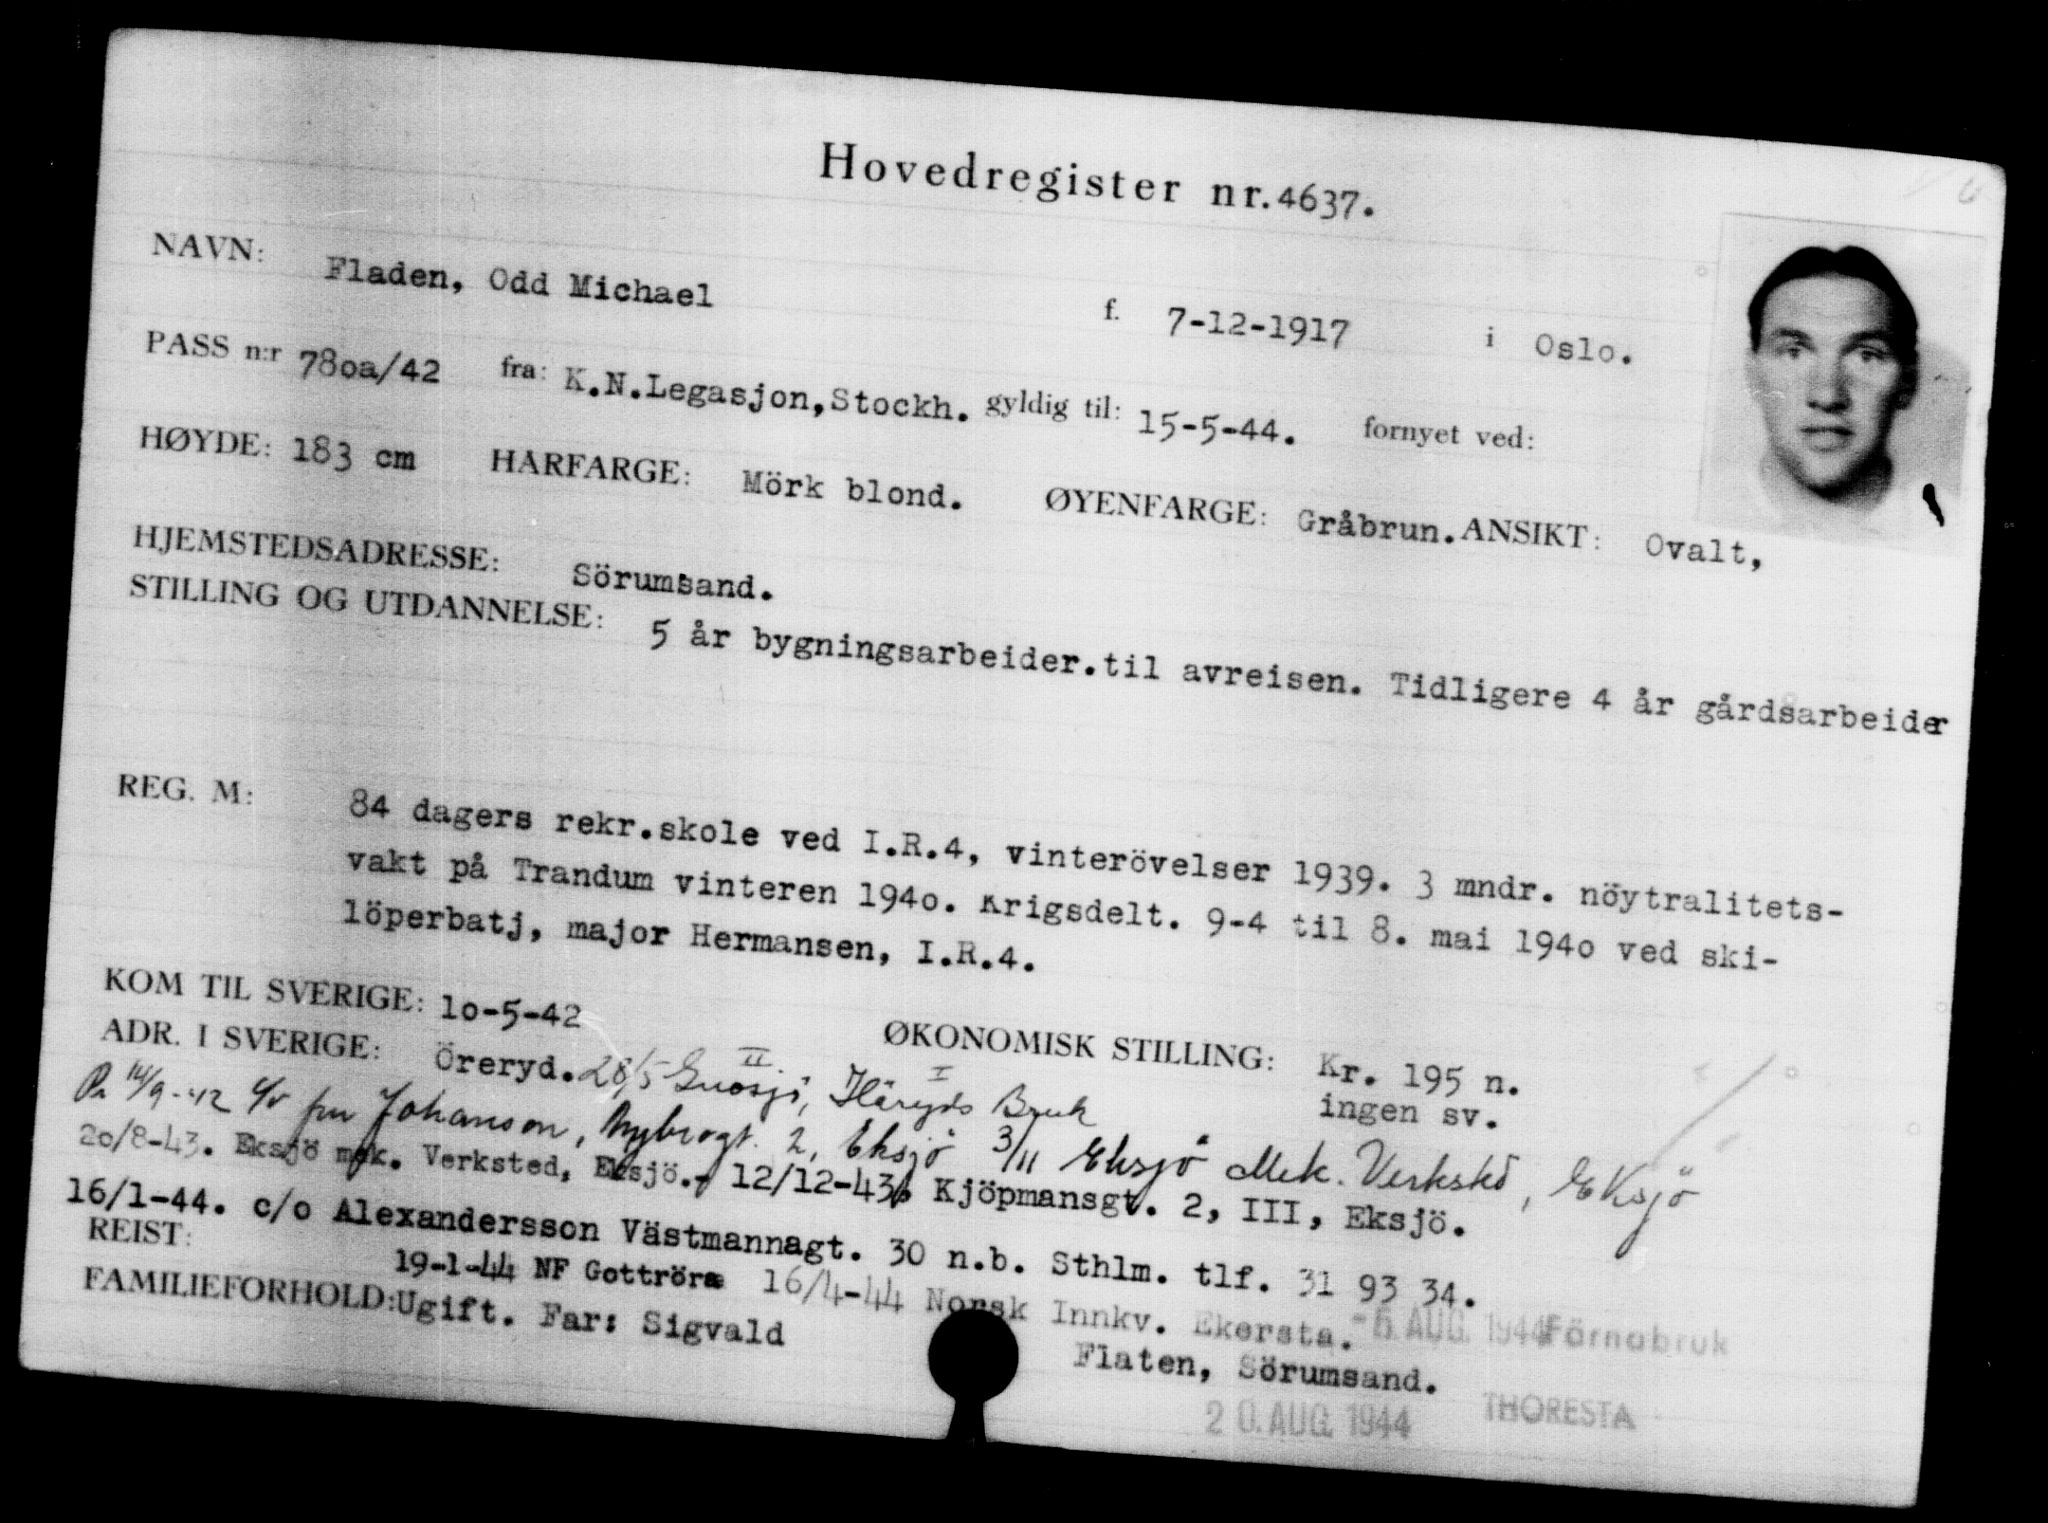 Hovedregister nr. 4637.
NAVN: Fladen, Odd Michael f. 7-12-1917 i Oslo.
PASS n:r 780a/42 fra: K.N.Legasjon,Stockh. gyldig til: 15-5-44. fornyet ved:
HØYDE: 183 cm HARFARGE: Mörk blond. ØYENFARGE: Gråbrun. ANSIKT: Ovalt,
HJEMSTEDSADRESSE: Sörumsand.
STILLING OG UTDANNELSE: 5 år bygningsarbeider.til avreisen. Tidligere 4 år gårdsarbeider
REG. M: 84 dagers rekr.skole ved I.R.4, vinterövelser 1939. 3 mndr. nöytralitets-
vakt på Trandum vinteren 1940. Krigsdelt. 9-4 til 8. mai 1940 ved ski-
löperbatj, major Hermansen, I.R.4.
KOM TIL SVERIGE: 10-5-42 ØKONOMISK STILLING: Kr. 195 n.
ingen sv.
ADR. I SVERIGE: Öreryd. 28/5 Gnosjö, II Häryds Bruk I
14/9-42 c/o fru Johanson, Nybrogt. 2, Eksjö 3/11 Eksjö Mek. Verkstd, Eksjö
20/8-43. Eksjö mek. Verksted, Eksjö.- 12/12-43 Kjöpmansgt. 2, III, Eksjö.
16/1-44. c/o Alexandersson Västmannagt. 30 n.b. Sthlm. tlf. 31 93 34.
REIST: 19-1-44 NF Gottröra 16/4-44 Norsk Innkv. Ekersta. -5. AUG. 1944 Färnabruk
FAMILIEFORHOLD: Ugift. Far: Sigvald Flaten, Sörumsand.
20. AUG. 1944 THORESTA